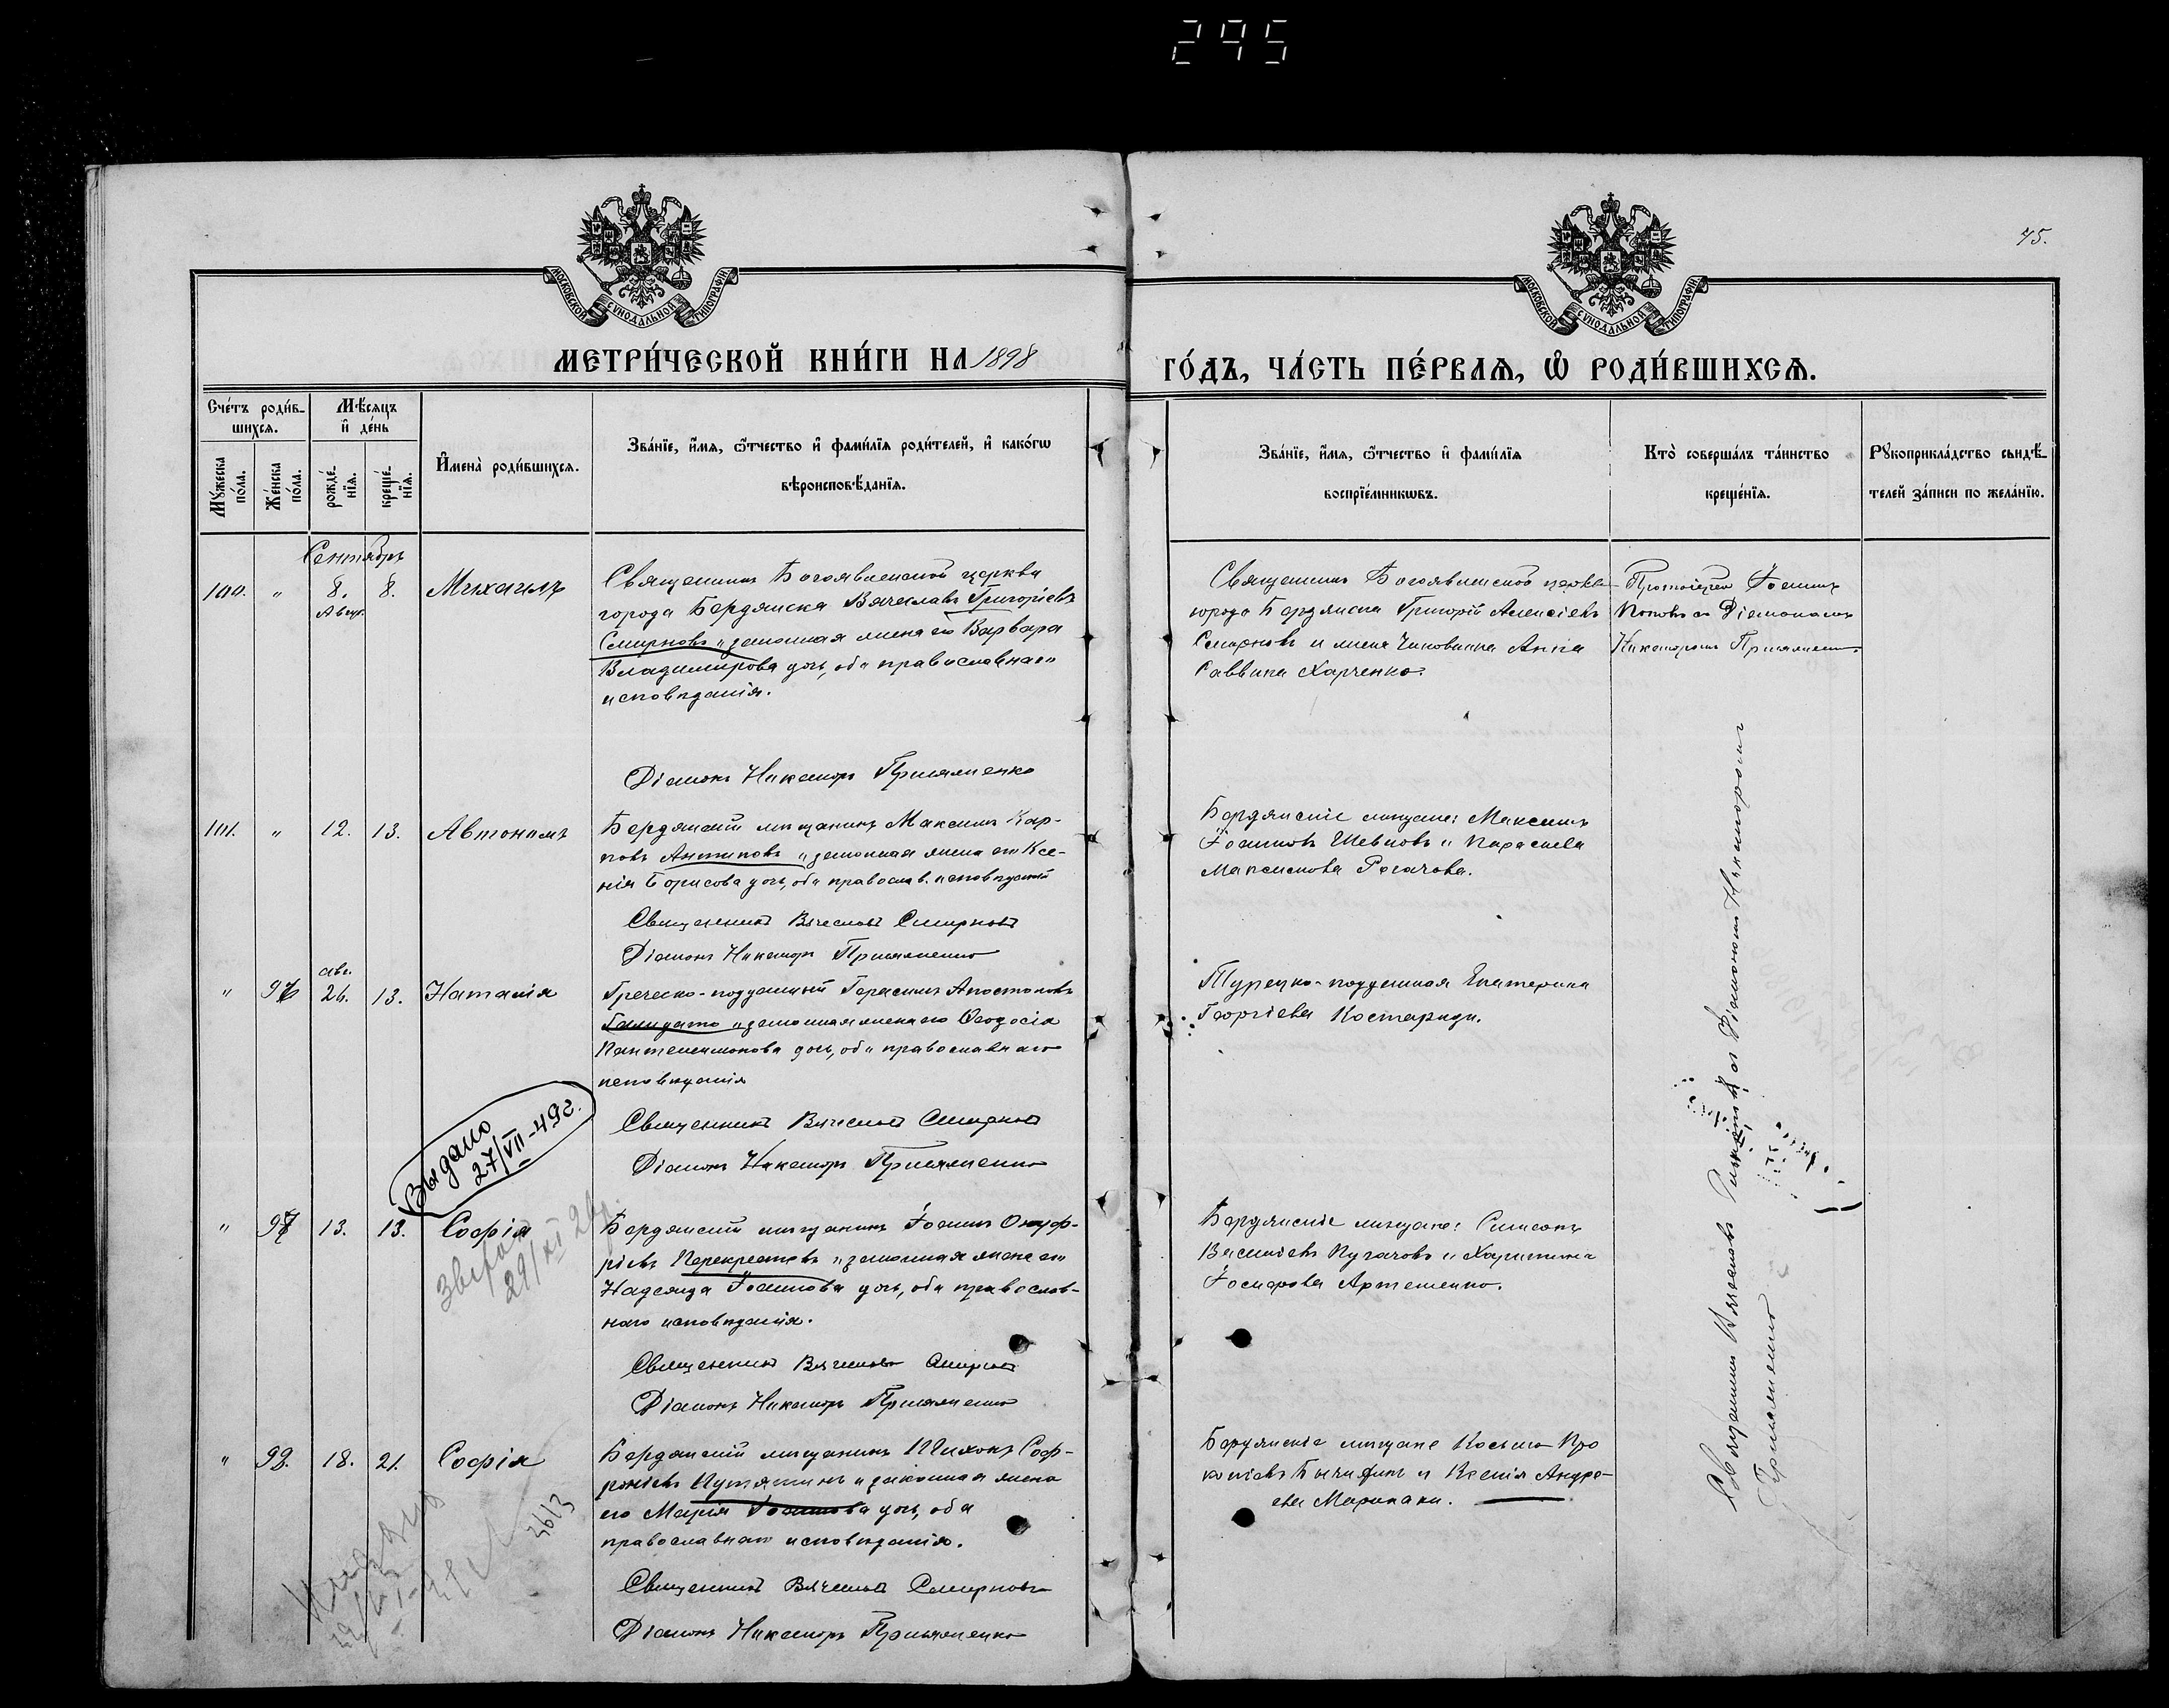 295
75.
МОСКОВСКОЙ СУНОДАЛЬНОЙ ТИПОГРАФІИ
МОСКОВСКОЙ СУНОДАЛЬНОЙ ТИПОГРАФІИ
МЕТРИ́ЧЕСКОЙ КНИ́ГИ НА 1898
ГО́ДЪ, ЧА́СТЬ ПЕ́РВАѦ, Ѡ҆ РОДИ́ВШИХСѦ.
Сче́тъ роди́в-
шихсѧ.
Мѣ́сѧцъ
и҆ де́нь
Мꙋ́жеска по́ла.
Же́нска по́ла.
рожде́-
нїѧ.
креще́-
нїѧ.
И҆мена̀ роди́вшихсѧ.
Зва́нїе, и҆́мѧ, ѻ҆́тчество и҆ фами́лїѧ роди́телей, и҆ како́гѡ
вѣроисповѣ́данїѧ.
Зва́нїе, и҆́мѧ, ѻ҆́тчество и҆ фами́лїѧ
воспрїе́мникѡвъ.
Кто̀ соверша́лъ та́инство
креще́нїѧ.
Рꙋкоприкла́дство свидѣ́-
телей за́писи по жела́нїю.
Сентябрь
100. " 8. 8. Михаилъ
Август.
Священникъ Богоявленской церкви
города Бердянска Вячеславъ Григоріевъ
Смирновъ и законная жена его Варвара
Владимирова дочь, оба православнаго
исповѣданія.
Діаконъ Никаноръ Присяженко
Священникъ Богоявленской церкви
города Бердянска Григорій Алексіевъ
Смирновъ и жена Чиновника Анна
Саввина Харченко.
Протоіерей Іоаннъ
Поповъ съ Діакономъ
Никаноромъ Присяженко.
101. " 12. 13. Автономъ
Бердянскій мѣщанинъ Максимъ Кар-
повъ Антиповъ и законная жена его Ксе-
нія Борисова дочь, оба православ. исповѣданій
Священникъ Вячеславъ Смирновъ
Діаконъ Никаноръ Присяженко
Бердянскіе мѣщане: Максимъ
Іоанновъ Шевцовъ и Параскева
Максимова Рогачова.
" 96 авг. 26. 13. Наталія
Греческо-подданный Герасимъ Апостоловъ
и законная жена его Ѳеодосія
Пантелеимонова дочь, оба православнаго
исповѣданія
Священникъ Вячеславъ Смирновъ
Діаконъ Никаноръ Присяженко
Турецко-подданная Екатерина
Георгіева Костариди.
Выдано
27/VII-49г.
" 97 13. 13. Софія
29/XI
Бердянскій мѣщанинъ Іоаннъ Онуф-
ріевъ Перекрестовъ и законная жена его
Надежда Іоаннова дочь, оба православ-
наго исповѣданія.
Священникъ Вячеславъ Смирновъ
Діаконъ Никаноръ Присяженко
Бердянскіе мѣщане: Симеонъ
Васильевъ Пугачовъ и Харитина
Іосифова Артеменко.
" 98. 18. 21. Софія
3613
Бердянскій мѣщанинъ Тихонъ Соф-
роніевъ Путятинъ и законная жена
его Марія Іоаннова дочь, оба
православнаго исповѣданія.
Священникъ Вячеславъ Смирновъ
Діаконъ Никаноръ Присяженко
Бердянскіе мѣщане Косьма Про
копіевъ и Ксенія Андре-
ева Маринаки.
Священникъ Вячеславъ Смирновъ съ Діакономъ Никаноромъ
Присяженко